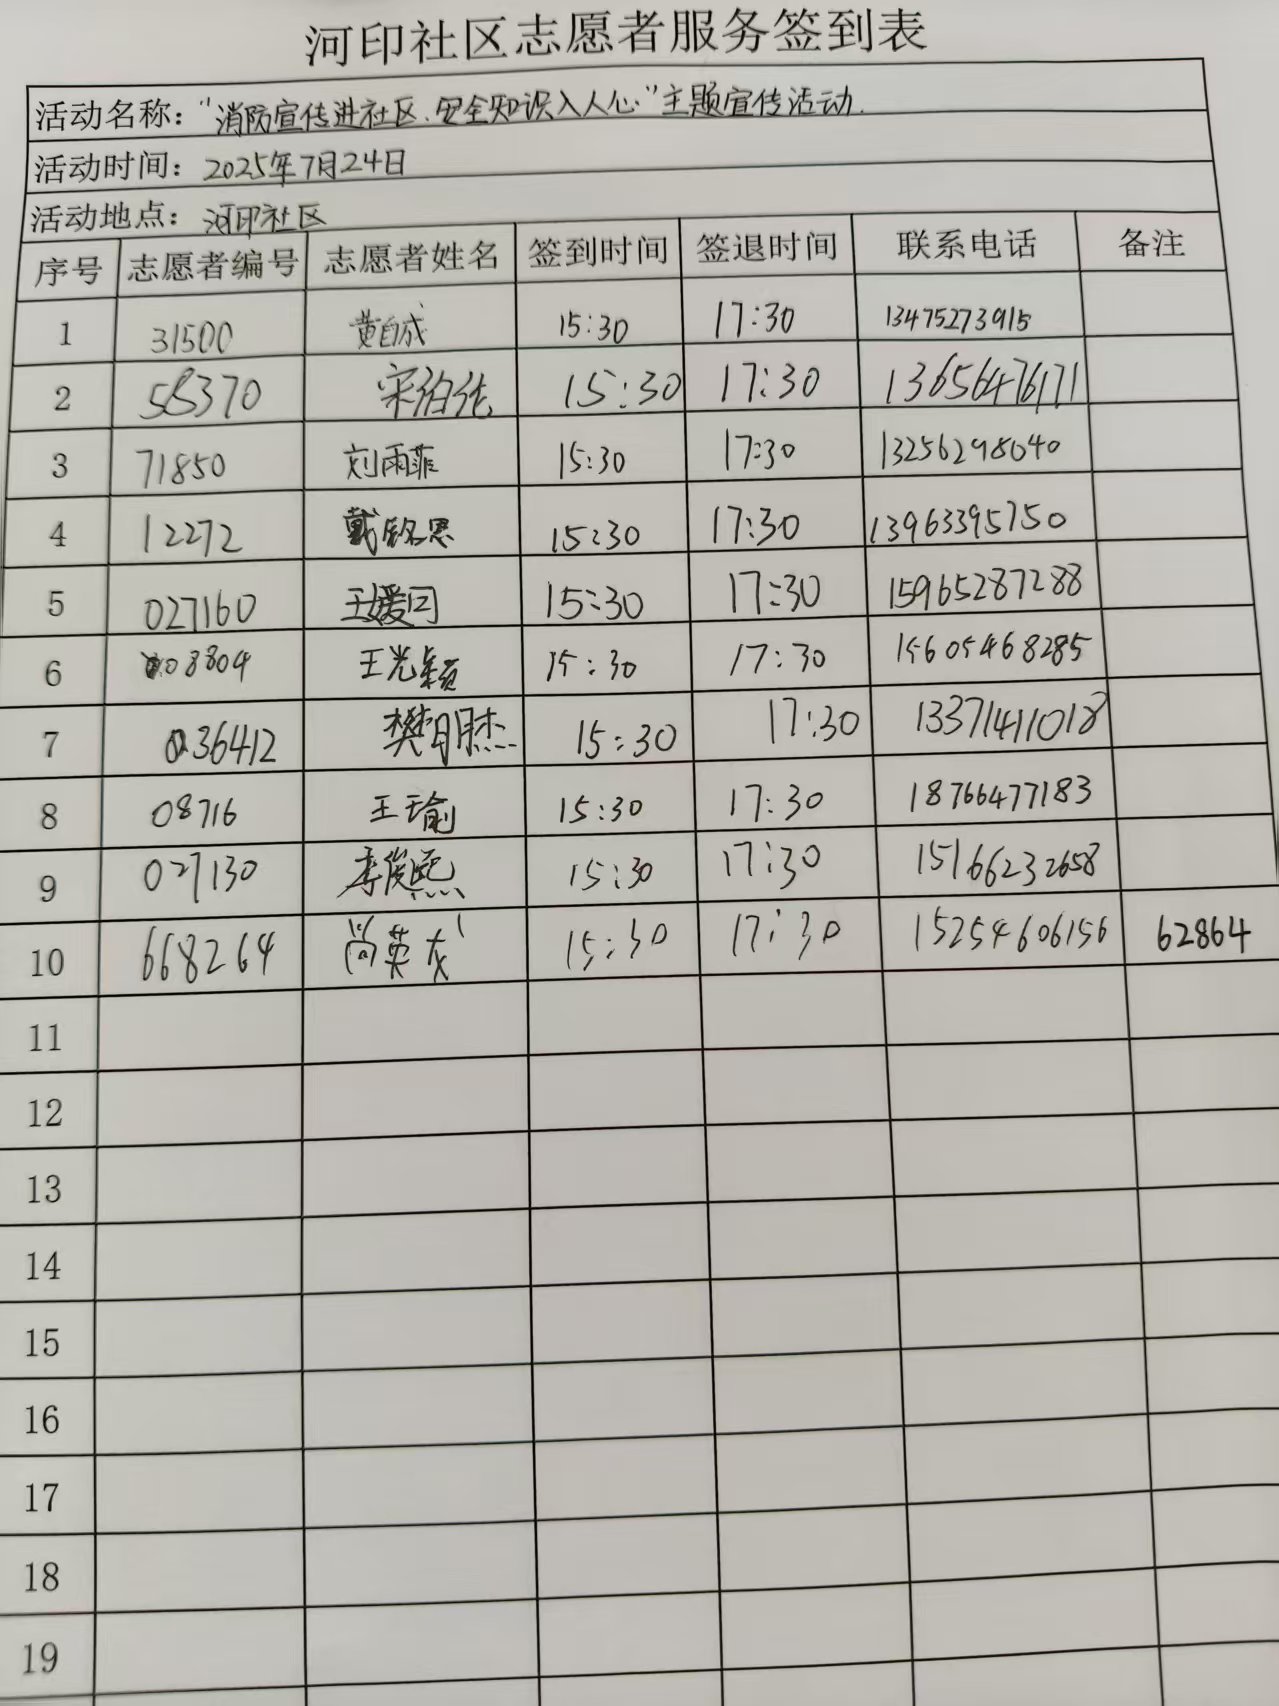 河印社区志愿者服务签到表
活动名称："消防宣传进社区.安全知识入人心"主题宣传活动.
活动时间：2025年7月24日
活动地点：河印社区
序号 志愿者编号 志愿者姓名 签到时间 签退时间 联系电话 备注
1 31500 黄自成 15:30 17:30 13475273915
2 58370 宋伯伦 15:30 17:30 13656476171
3 71850 刘雨菲 15:30 17:30 13256298040
4 12272 戴铭恩 15:30 17:30 13963395750
5 027160 王媛 15:30 17:30 15965287288
6 08804 王光颖 15:30 17:30 15605468285
7 036412 樊明杰 15:30 17:30 13371411018
8 08716 王瑜 15:30 17:30 18766477183
9 027130 李俊熙 15:30 17:30 15166232658
10 668264 尚英 15:30 17:30 15254606156 62864
11
12
13
14
15
16
17
18
19